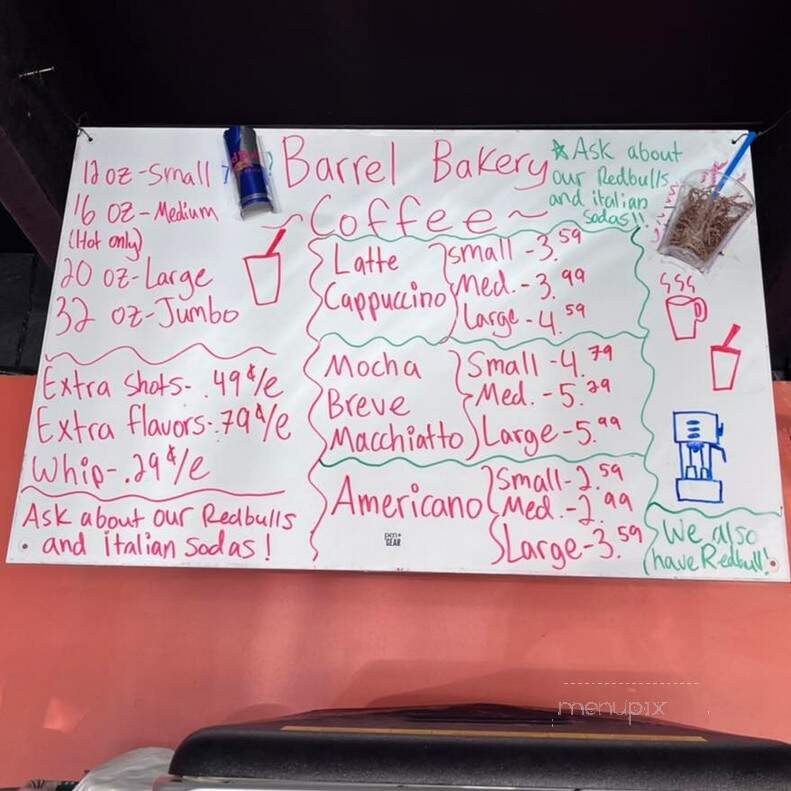 12 oz-Small
16 oz-Medium
(Hot only)
20 oz-Large
32 oz-Jumbo
Extra Shots- .49¢/e
Extra flavors-.79¢/e
Whip-.29¢/e
Ask about our Redbulls
and italian Sodas!
Barrel Bakery
~Coffee~
Latte
Cappuccino
small - 3.59
Med. - 3.99
Large - 4.59
Mocha
Breve
Macchiatto
Small - 4.79
Med. - 5.29
Large - 5.99
Americano
Small - 2.59
Med. - 2.99
Large - 3.59
pen+
GEAR
*Ask about
our Redbulls
and italian
sodas!!
We also
have Redbull!
menupix